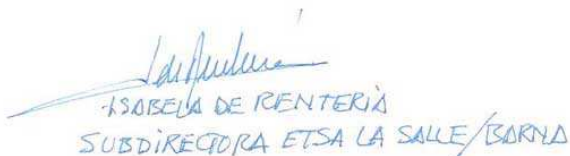 ISABELA DE RENTERIA
SUBDIRECTORA ETSA LA SALLE/BARNA